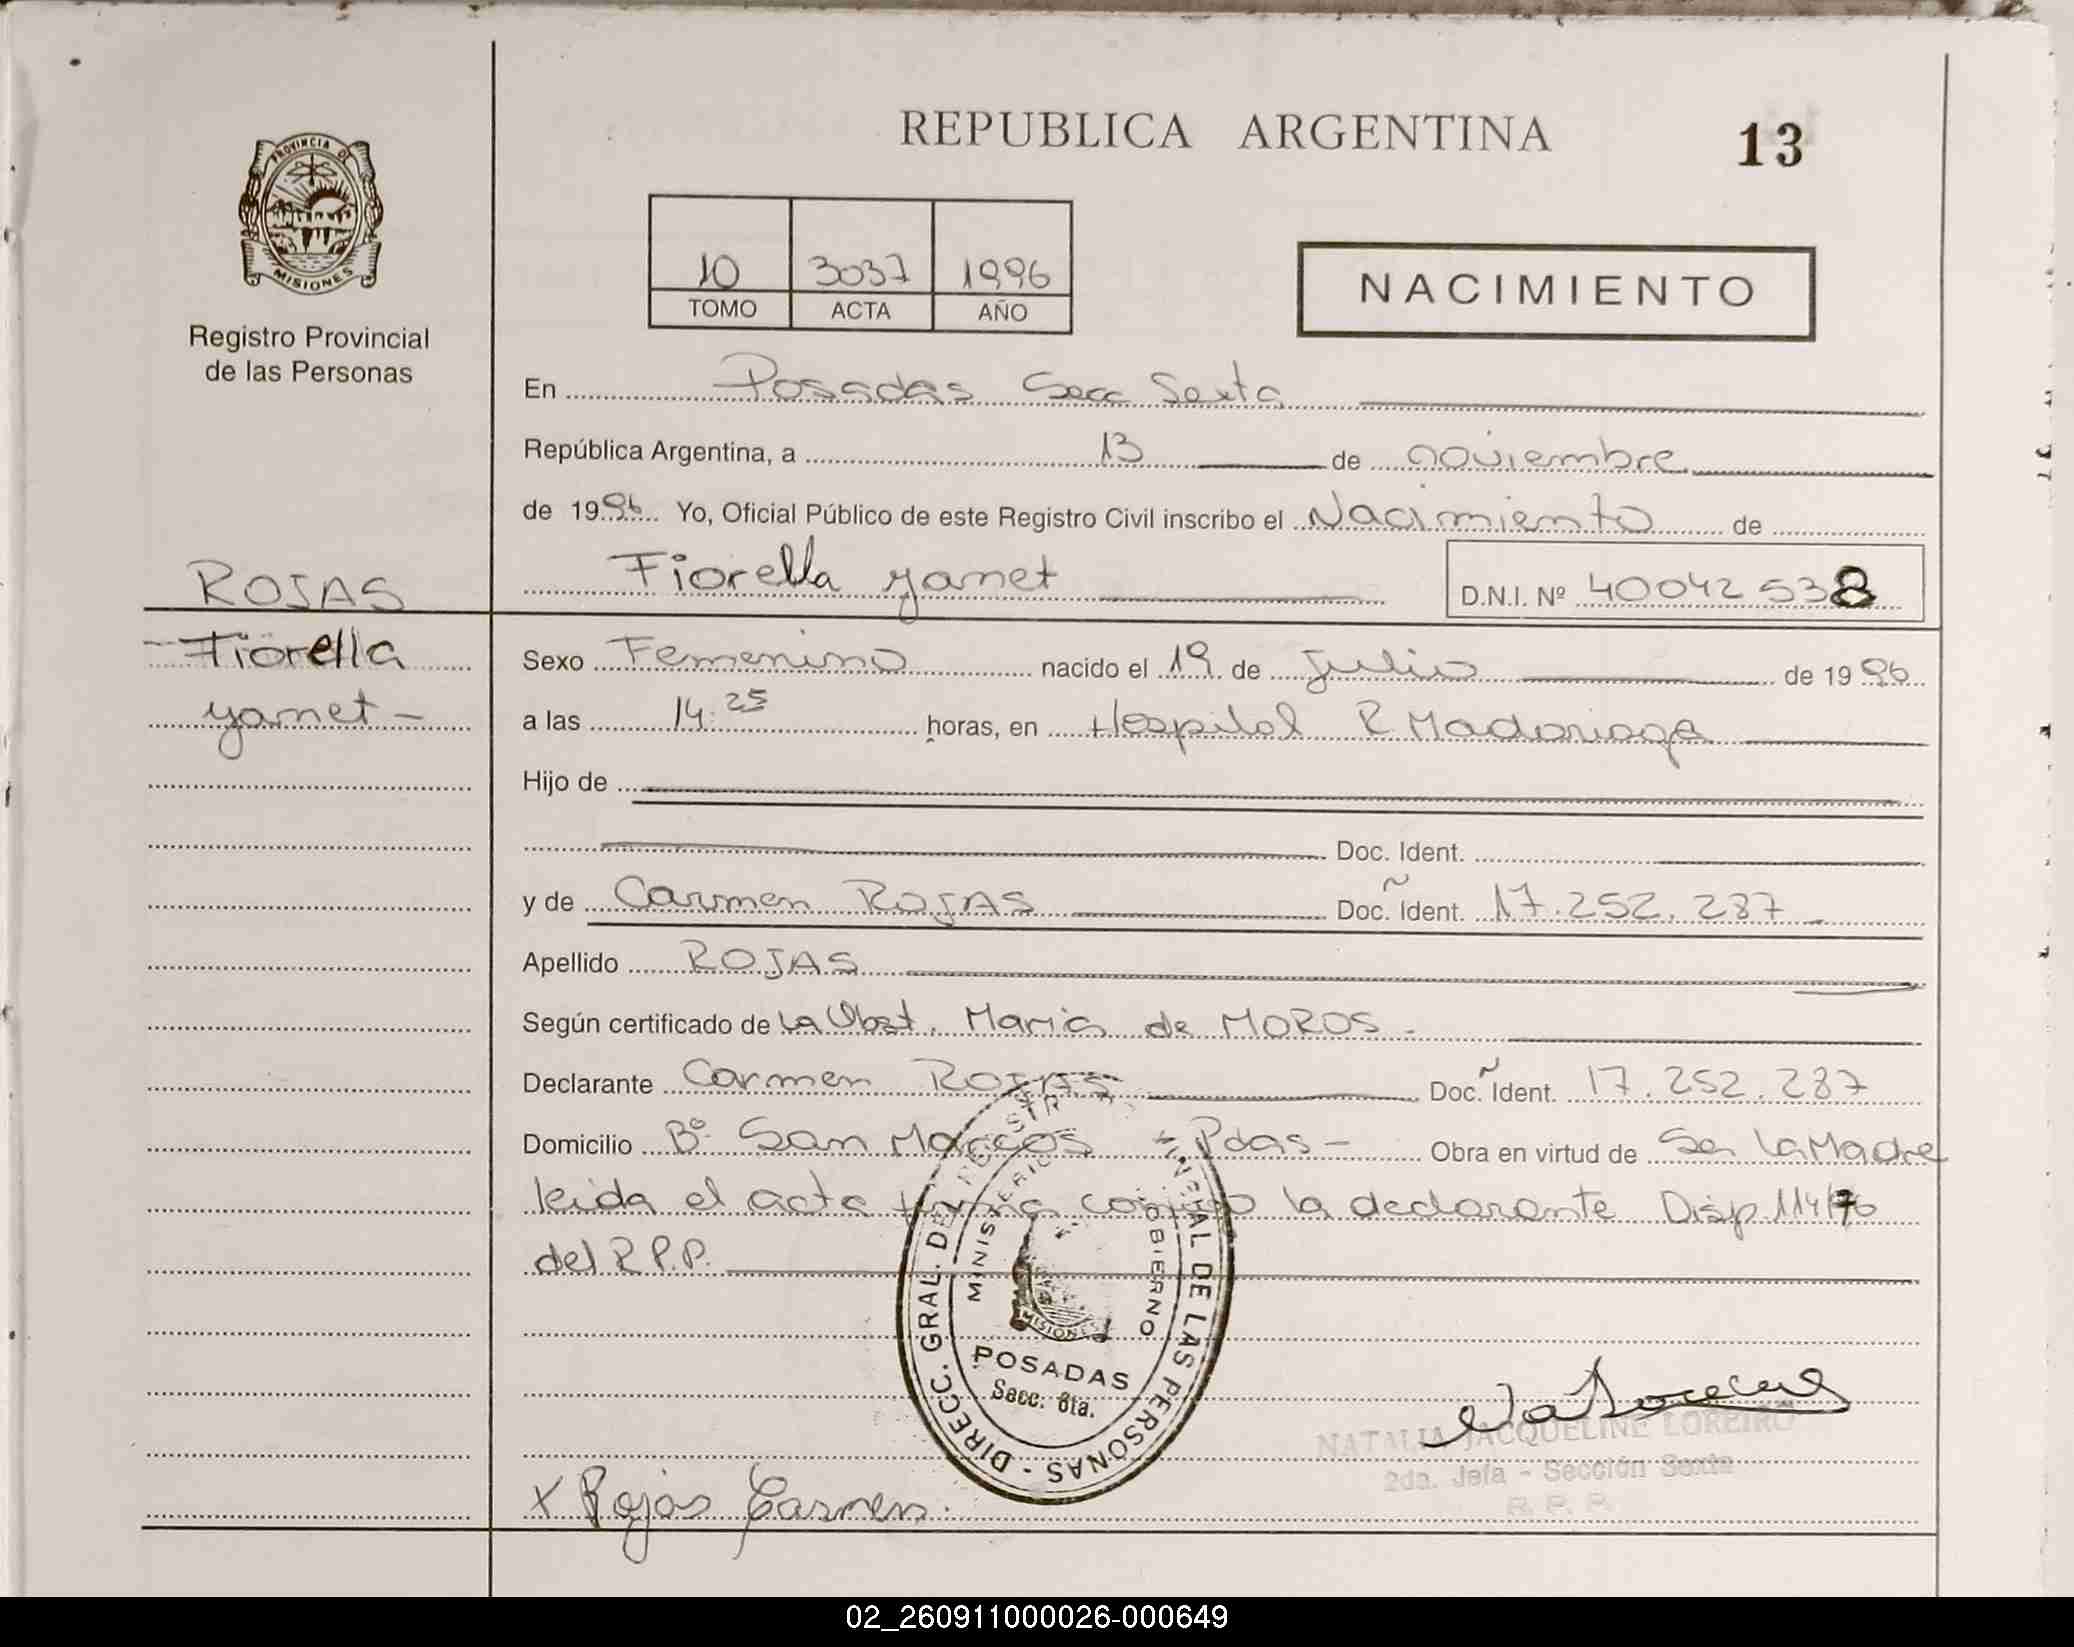 REPUBLICA ARGENTINA
13
PROVINCIA DE
MISIONES
Registro Provincial
de las Personas
10 3037 1996
TOMO ACTA AÑO
NACIMIENTO
En Posadas Secc Sexta
República Argentina, a 13 de noviembre
de 1996 Yo, Oficial Público de este Registro Civil inscribo el Nacimiento de
Fiorella yanet D.N.I. Nº 40042538
ROJAS
Fiorella
yanet -
Sexo Femenino nacido el 19 de Julio de 1996
a las 14:25 horas, en Hospital R Madariaga
Hijo de
Doc. Ident.
y de Carmen ROJAS Doc. Ident. 17.252.287
Apellido ROJAS
Según certificado de La Obst. Maria de MOROS -
Declarante Carmen ROJAS Doc. Ident. 17.252.287
Domicilio Bº San Marcos - Pdas - Obra en virtud de Ser La Madre
leida el acta firma conmigo la declarante Disp 114/76
del R.P.P.
DIRECC. GRAL. DEL REGISTRO PROVINCIAL DE LAS PERSONAS -
MINISTERIO GOBIERNO
MISIONES
POSADAS
Secc: 6ta.
NATALIA JACQUELINE LOREIRO
2da. Jefa - Sección Sexta
R. P. P.
X Rojas Carmen.
02_260911000026-000649